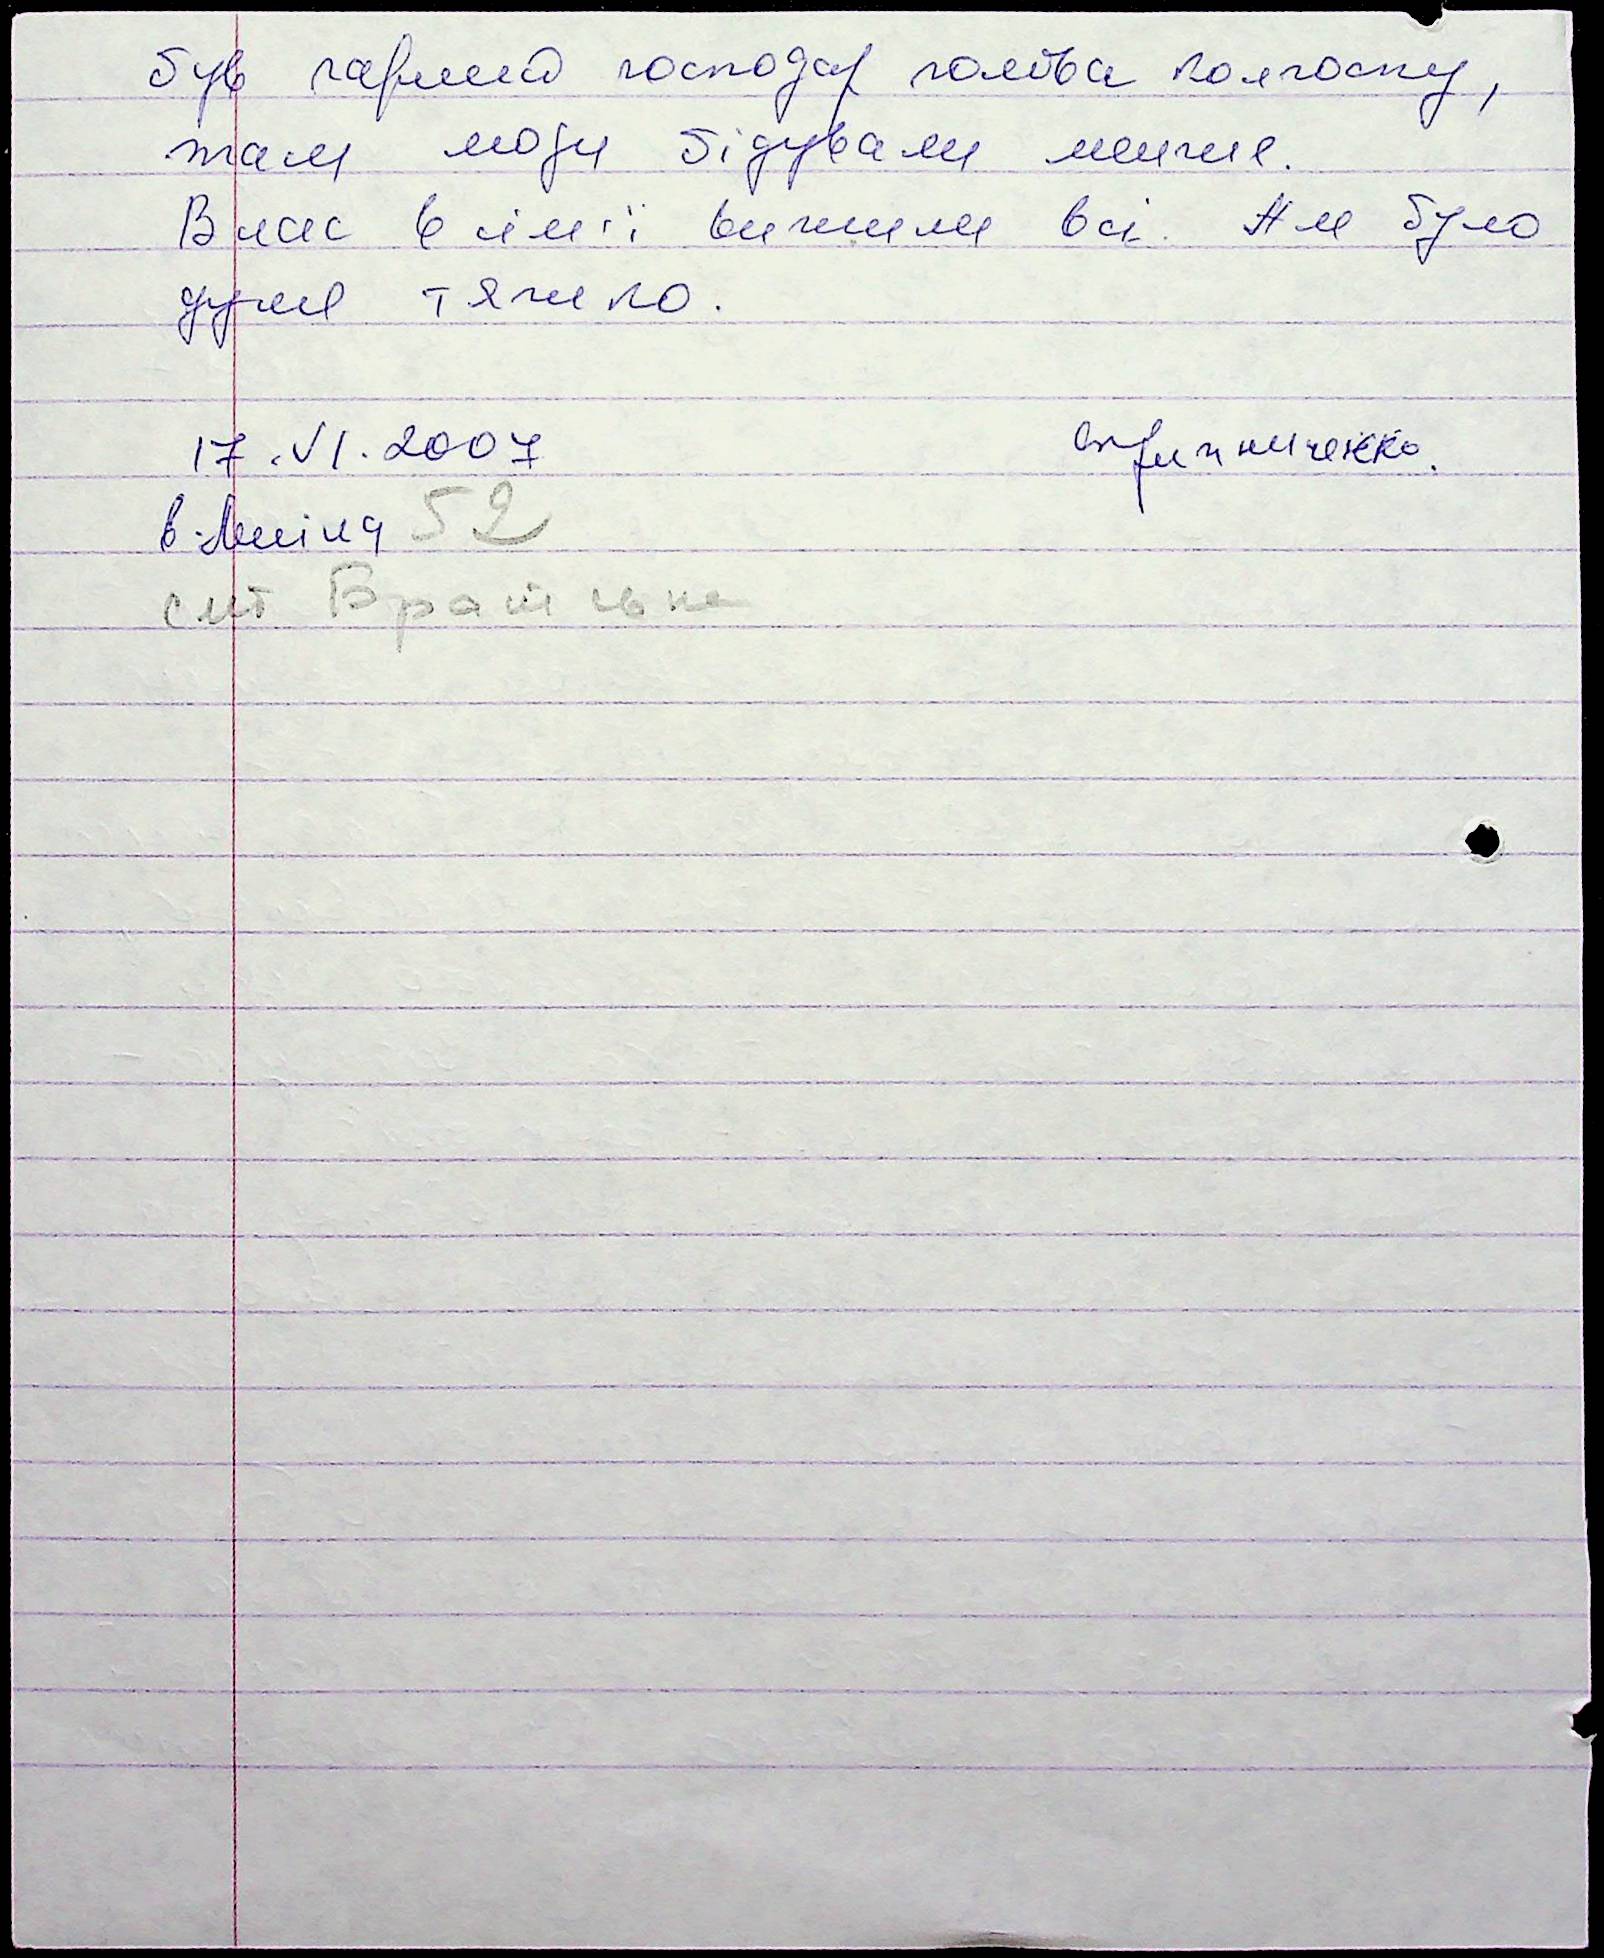 був гарний господар голова колгоспу,
там люди бідували менше.
В нас в сім'ї вижили всі. Ал було
дуже тяжко.
17.VI.2007 Скрипниченко.
в. Леніна 52
смт Братське